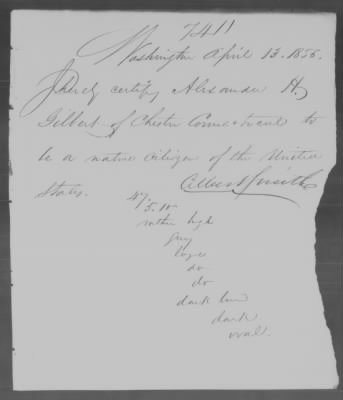 7411
Washington April 13. 1855.
I hereby certify Alexander H.
Gilbert of Chester Connecticut to
be a native citizen of the United
States.
47.
5.10
rather high
grey
large
do
do
dark
dark
oval.